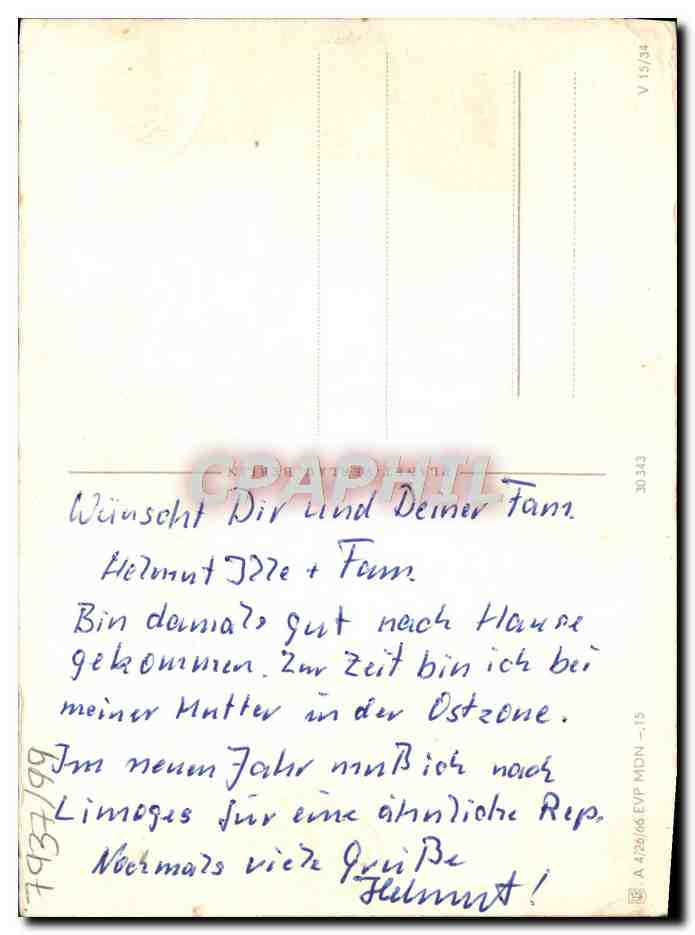 V 15/34
PLANET-VERLAG BERLIN
CPAPHIL
30 343
Wünscht Dir und Deiner Fam.
Helmut Ille + Fam.
Bin damals gut nach Hause
gekommen. Zur Zeit bin ich bei
meiner Mutter in der Ostzone.
Im neuen Jahr muß ich nach
Limoges für eine ähnliche Rep.
Nochmals viele Grüße
Helmut!
A 4/26/66 EVP MDN -,15
7937/99